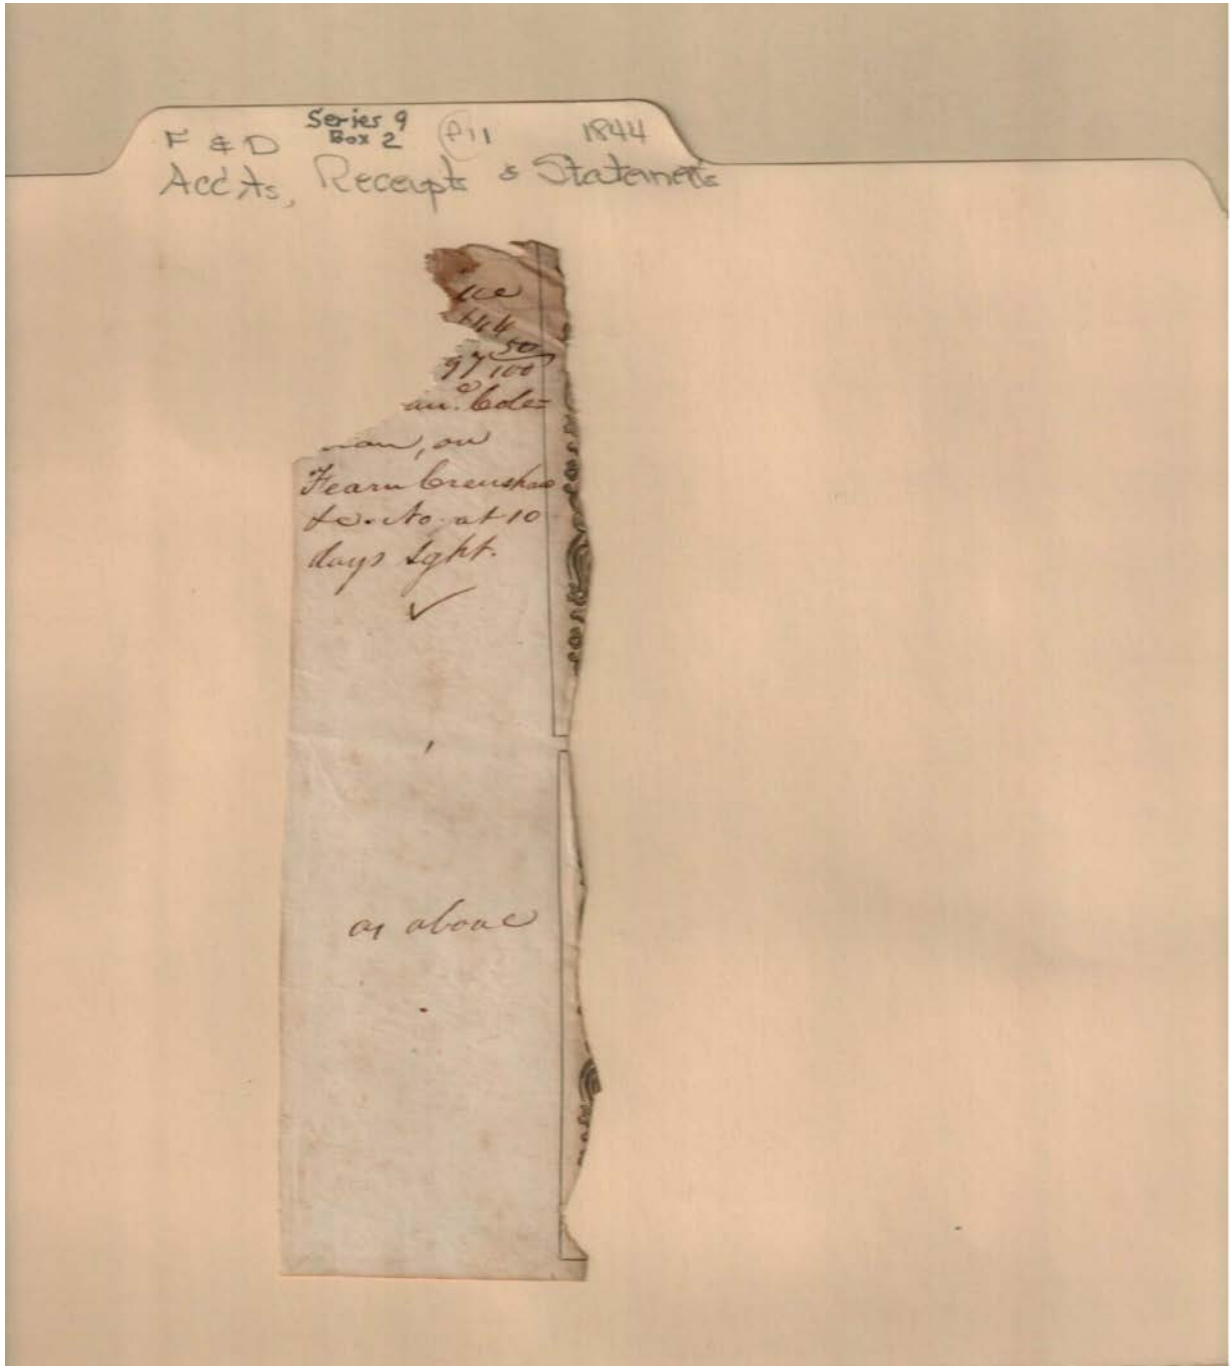 Series 9
F & D Box 2 F11 1844
Acc'ts, Receipts & Statements
44
97 50/100
an. Cole=
man, on
Fearn Crenshaw
& Co. No. at 10
days sght.
✓
as above